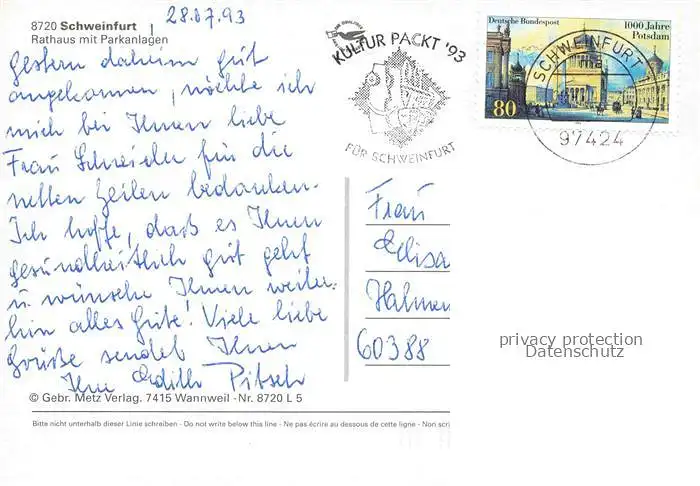 8720 Schweinfurt
Rathaus mit Parkanlagen
28.07.93
Gestern daheim gut
angekommen, möchte ich
mich bei Ihnen liebe
Frau Schneider für die
netten Zeilen bedanken.
Ich hoffe, daß es Ihnen
gesundheitlich gut geht
u. wünsche Ihnen weiter-
hin alles Gute! Viele liebe
Grüße sendet Ihnen
Ihre Edith Pitsch
© Gebr. Metz Verlag. 7415 Wannweil - Nr. 8720 L 5
Bitte nicht unterhalb dieser Linie schreiben - Do not write below this line - Ne pas écrire au dessous de cette ligne - Non scri
KULTUR PACKT '93
FÜR SCHWEINFURT
Deutsche Bundespost
1000 Jahre
Potsdam
80
SCHWEINFURT
97424
Frau
Elisa
60388
privacy protection
Datenschutz